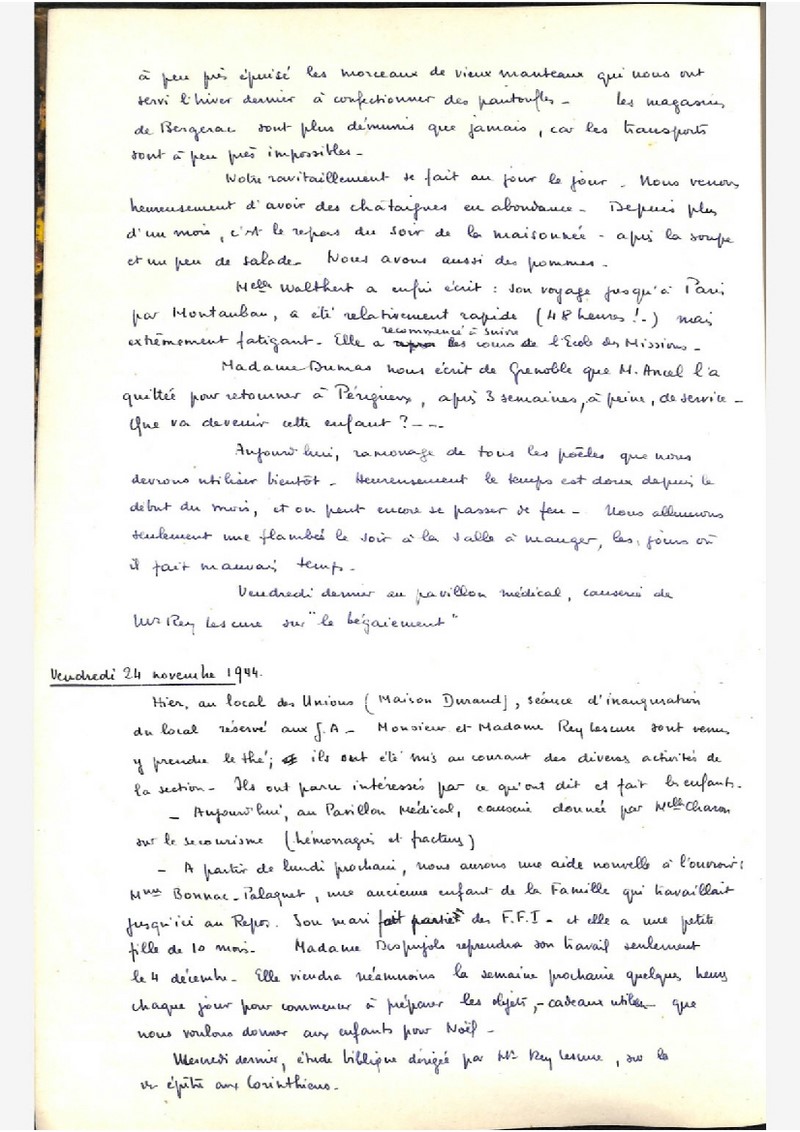 à peu près épuisé les morceaux de vieux manteaux qui nous ont
servi l'hiver dernier à confectionner des pantoufles - les magasins
de Bergerac sont plus démunis que jamais, car les transports
sont à peu près impossibles -
Notre ravitaillement se fait au jour le jour - Nous venons
heureusement d'avoir des châtaignes en abondance - Depuis plus
d'un mois, c'est le repas du soir de la maisonnée - après la soupe
et un peu de salade - Nous avons aussi des pommes -
Melle Walthert a enfin écrit : son voyage jusqu'à Paris
par Montauban, a été relativement rapide (48 heures ! -) mais
recommencé à suivre
extrêmement fatigant - Elle a les cours de l'Ecole des Missions -
Madame Dumas nous écrit de Grenoble que M. Ancel l'a
quittée pour retourner à Périgueux, après 3 semaines, à peine, de service -
Que va devenir cette enfant ? - - -
Aujourd'hui, ramonage de tous les poêles que nous
devrons utiliser bientôt - Heureusement le temps est doux depuis le
début du mois, et on peut encore se passer de feu - Nous allumons
seulement une flambée le soir à la salle à manger, les jours où
il fait mauvais temps -
Vendredi dernier au pavillon médical, causerie de
Mr Rey Lescure sur "le bégaiement"
Vendredi 24 novembre 1944.
Hier, au local des Unions (Maison Durand), séance d'inauguration
du local réservé aux J.A - Monsieur et Madame Rey Lescure sont venus
y prendre le thé; ils ont été mis au courant des diverses activités de
la section - Ils ont paru intéressés par ce qu'ont dit et fait les enfants -
- Aujourd'hui, au Pavillon Médical, causerie donnée par Melle Charon
sur le secourisme (hémorragies et fractures)
- A partir de lundi prochain, nous aurons une aide nouvelle à l'ouvroir :
Mme Bonnac-Palaguet, une ancienne enfant de la Famille qui travaillait
jusqu'ici au Repos. Son mari fait partie des F.F.I - et elle a une petite
fille de 10 mois - Madame Despujols reprendra son travail seulement
le 4 décembre - Elle viendra néanmoins la semaine prochaine quelques heures
chaque jour pour commencer à préparer les objets, - cadeaux utiles - que
nous voulons donner aux enfants pour Noël -
Mercredi dernier, étude biblique dirigée par Mr Rey Lescure, sur la
épître aux Corinthiens -